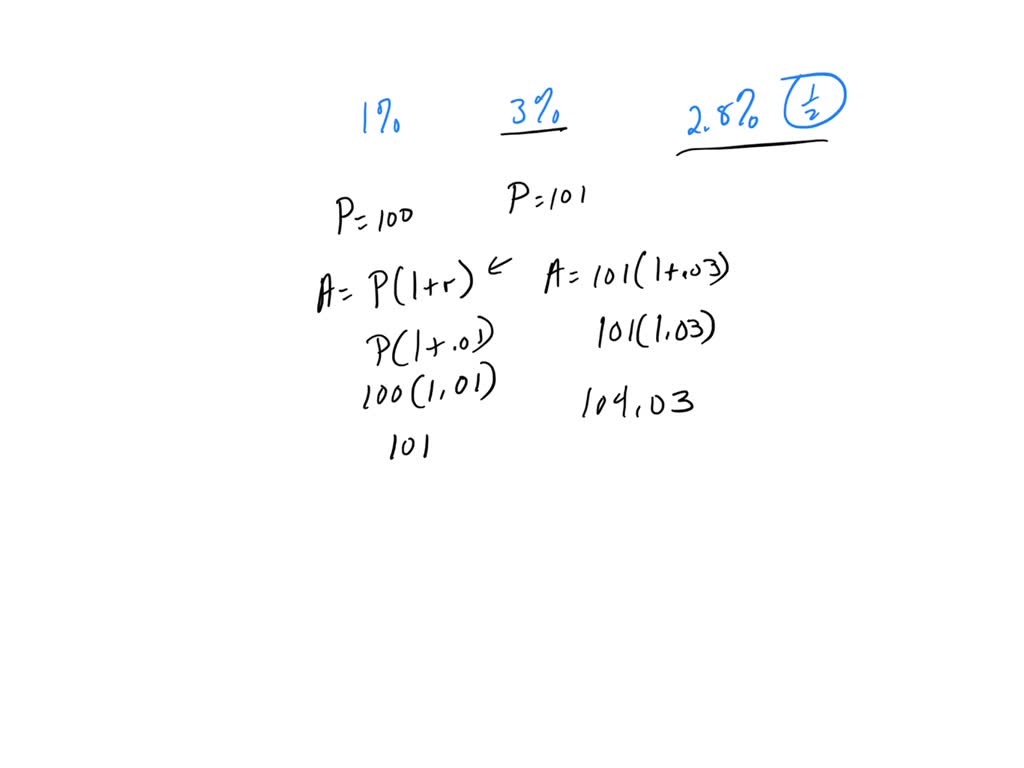 1% 3% 2.8% 1/2
P=100 P=101
A= P(1+r) ← A= 101(1+.03)
P(1+.01) 101(1.03)
100(1.01) 104.03
101